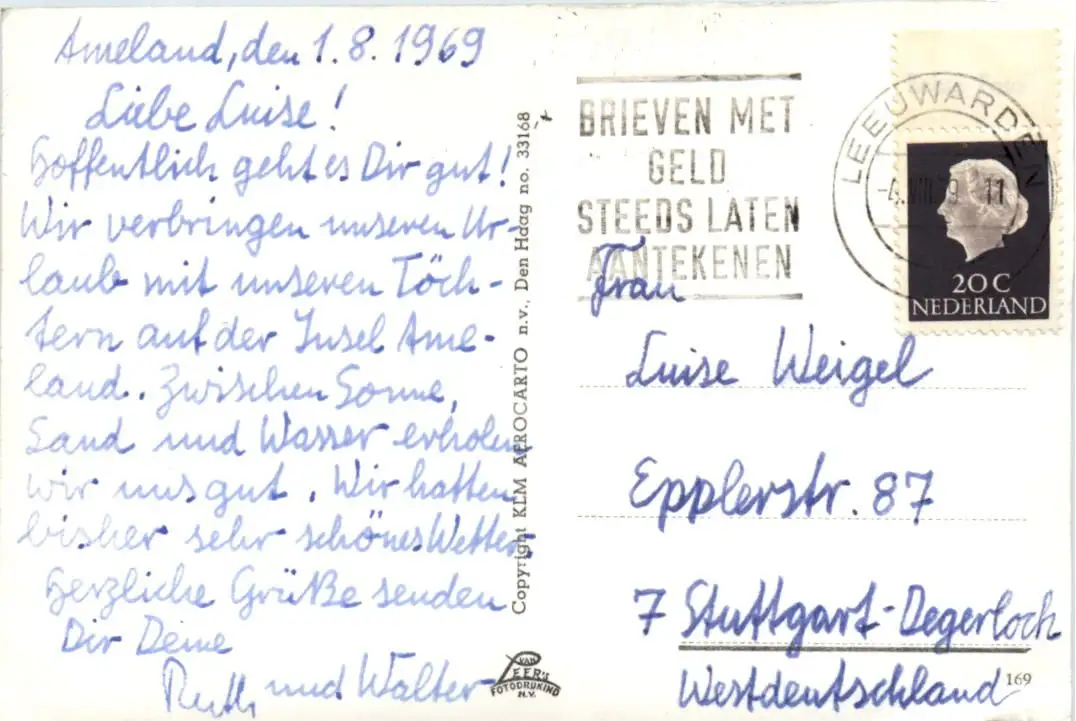 Ameland, den 1.8.1969
Liebe Luise!
Hoffentlich geht es Dir gut!
Wir verbringen unseren Ur-
laub mit unseren Töch-
tern auf der Insel Ame-
land. Zwischen Sonne,
Sand und Wasser erholen
wir uns gut. Wir hatten
bisher sehr schönes Wetter.
Herzliche Grüße senden
Dir Deine
Ruth und Walter
Copyright KLM AEROCARTO n.v., Den Haag no. 33168
VAN
LEER'S
FOTODRUKIND
N.V.
BRIEVEN MET
GELD
STEEDS LATEN
AANTEKENEN
LEEUWARDEN
11
20 C
NEDERLAND
Frau
Luise Weigel
Epplerstr. 87
7 Stuttgart-Degerloch
Westdeutschland
169